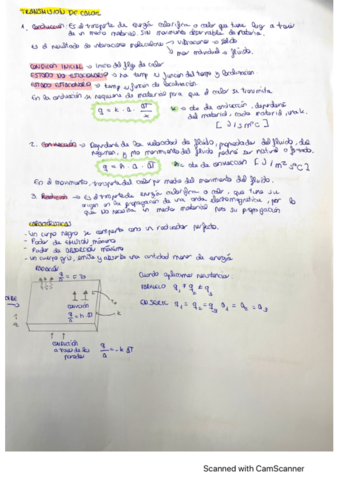 TRANSMISIÓN DE CALOR
1. Conducción: Es el transporte de energía calorífica o calor que tiene lugar a través
de un medio material sin movimiento observable de materia.
Es el resultado de vibraciones moleculares
vibraciones → sólido
mov. individual → fluido.
CONDICIÓN INICIAL → Inicio del flujo de calor
ESTADO NO ESTACIONARIO → no temp y función del tiempo y localización.
ESTADO ESTACIONARIO → temp y función de localización
En la conducción se requiere de material para que el calor se transmita.
q = k · A · ΔT/x
k = cte de conducción, dependerá
del material,
[J/s m ºC]
2. Convección → Dependerá de la velocidad de fluido, propiedades del fluido, del
régimen, y el movimiento del fluido podrá ser natural o forzado.
q = h · A · ΔT
h = cte de convección [J/m² s ºC]
En el movimiento, transporte del calor por medio del movimiento del fluido.
3. Radiación → Es el transporte de energía calorífica o calor, que tiene su
origen en la propagación de una onda electromagnética, por lo
que no necesita un medio material para su propagación
CARACTERÍSTICAS:
- Un cuerpo negro se comporta como un radiador perfecto.
- Poder de emisión máximo
- Poder de absorción máximo
- Un cuerpo gris, emite y absorbe una cantidad menor de energía.
Cuando aplicamos resistencias:
PARALELO q₁ ≠ q₂ ≠ q₃
EN SERIE q₁ = q₂ = q₃
CONVECCIÓN
q/A = h ΔT
CONDUCCIÓN
a través de las
paredes
q/A = -k ΔT
Scanned with CamScanner